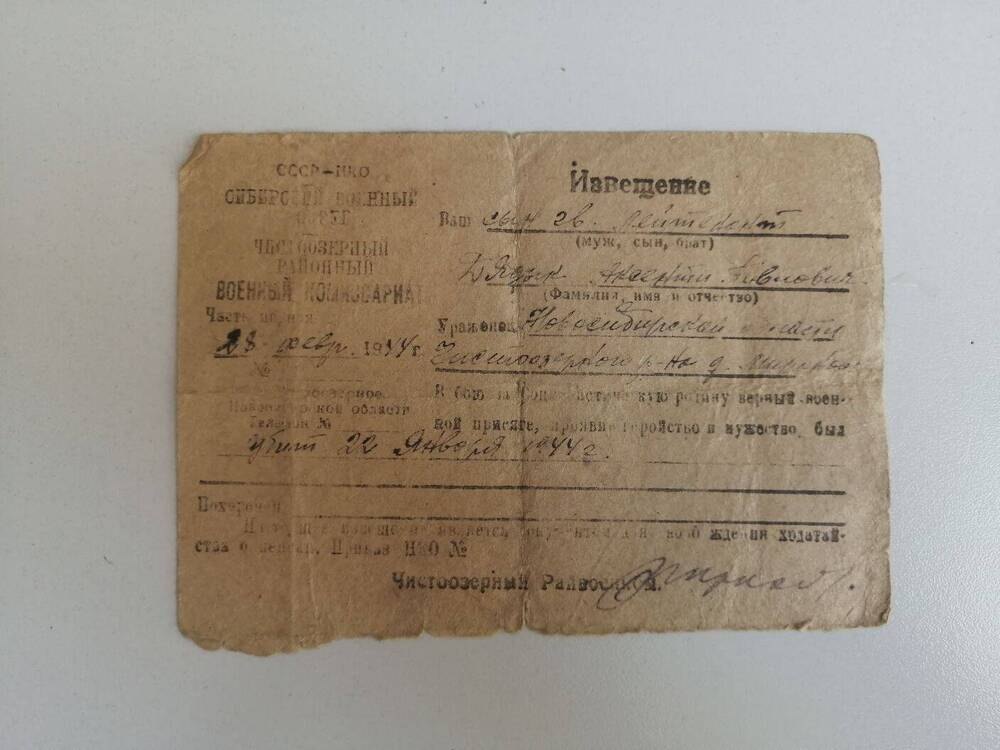 СССР-НКО
СИБИРСКИЙ ВОЕННЫЙ
ОКРУГ
ЧИСТООЗЕРНЫЙ
РАЙОННЫЙ
ВОЕННЫЙ КОМИССАРИАТ
Часть
28 февр. 1944 г.
№
Новосибирской области
Телефон №
Извещение
Ваш сын гв. лейтенант
(муж, сын, брат)
Павлович
(Фамилия, имя и отчество)
Уроженец Новосибирской области
Чистоозерного р-на д.
В бою за Социалистическую родину верный воен-
ной присяге, проявив геройство и мужество, был
убит 22 января 1944 г.
Похоронен
Настоящее извещение является документом для возбуждения ходатай-
ства о пенсии. Приказ НКО №
Чистоозерный Райвоенком.